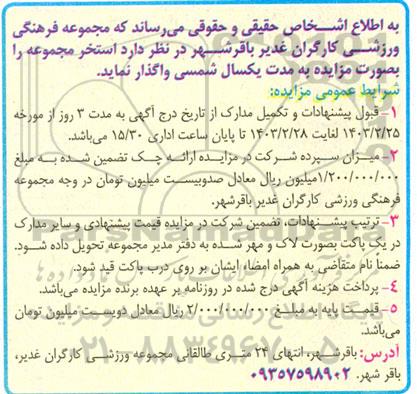 به اطلاع اشخاص حقیقی و حقوقی می‌رساند که مجموعه فرهنگی
ورزشی کارگران غدیر باقرشهر در نظر دارد استخر مجموعه را
بصورت مزایده به مدت یکسال شمسی واگذار نماید.
شرایط عمومی مزایده:
۱- قبول پیشنهادات و تکمیل مدارک از تاریخ درج آگهی به مدت ۳ روز از مورخه
۱۴۰۳/۲/۲۵ لغایت ۱۴۰۳/۲/۲۸ تا پایان ساعت اداری ۱۵/۳۰ می‌باشد.
۲- میزان سپرده شرکت در مزایده ارائه چک تضمین شده به مبلغ
۱/۲۰۰/۰۰۰/۰۰۰میلیون ریال معادل صدوبیست میلیون تومان در وجه مجموعه
فرهنگی ورزشی کارگران غدیر باقرشهر.
۳- ترتیب پیشنهادات، تضمین شرکت در مزایده قیمت پیشنهادی و سایر مدارک
در یک پاکت بصورت لاک و مهر شده به دفتر مدیر مجموعه تحویل داده شود.
ضمنا نام متقاضی به همراه امضا ایشان بر روی درب پاکت قید شود.
۴- پرداخت هزینه آگهی درج شده در روزنامه بر عهده برنده مزایده می‌باشد.
۵- قیمت پایه به مبلغ ۲/۰۰۰/۰۰۰/۰۰۰ ریال معادل دویست میلیون تومان
می‌باشد.
آدرس: باقرشهر، انتهای ۲۴ متری طالقانی مجموعه ورزشی کارگران غدیر،
باقر شهر. ۰۹۳۵۷۵۹۸۹۰۲
ParsNamadData
۰۲۱-۸۸۳۴۹۶۷۰-۵